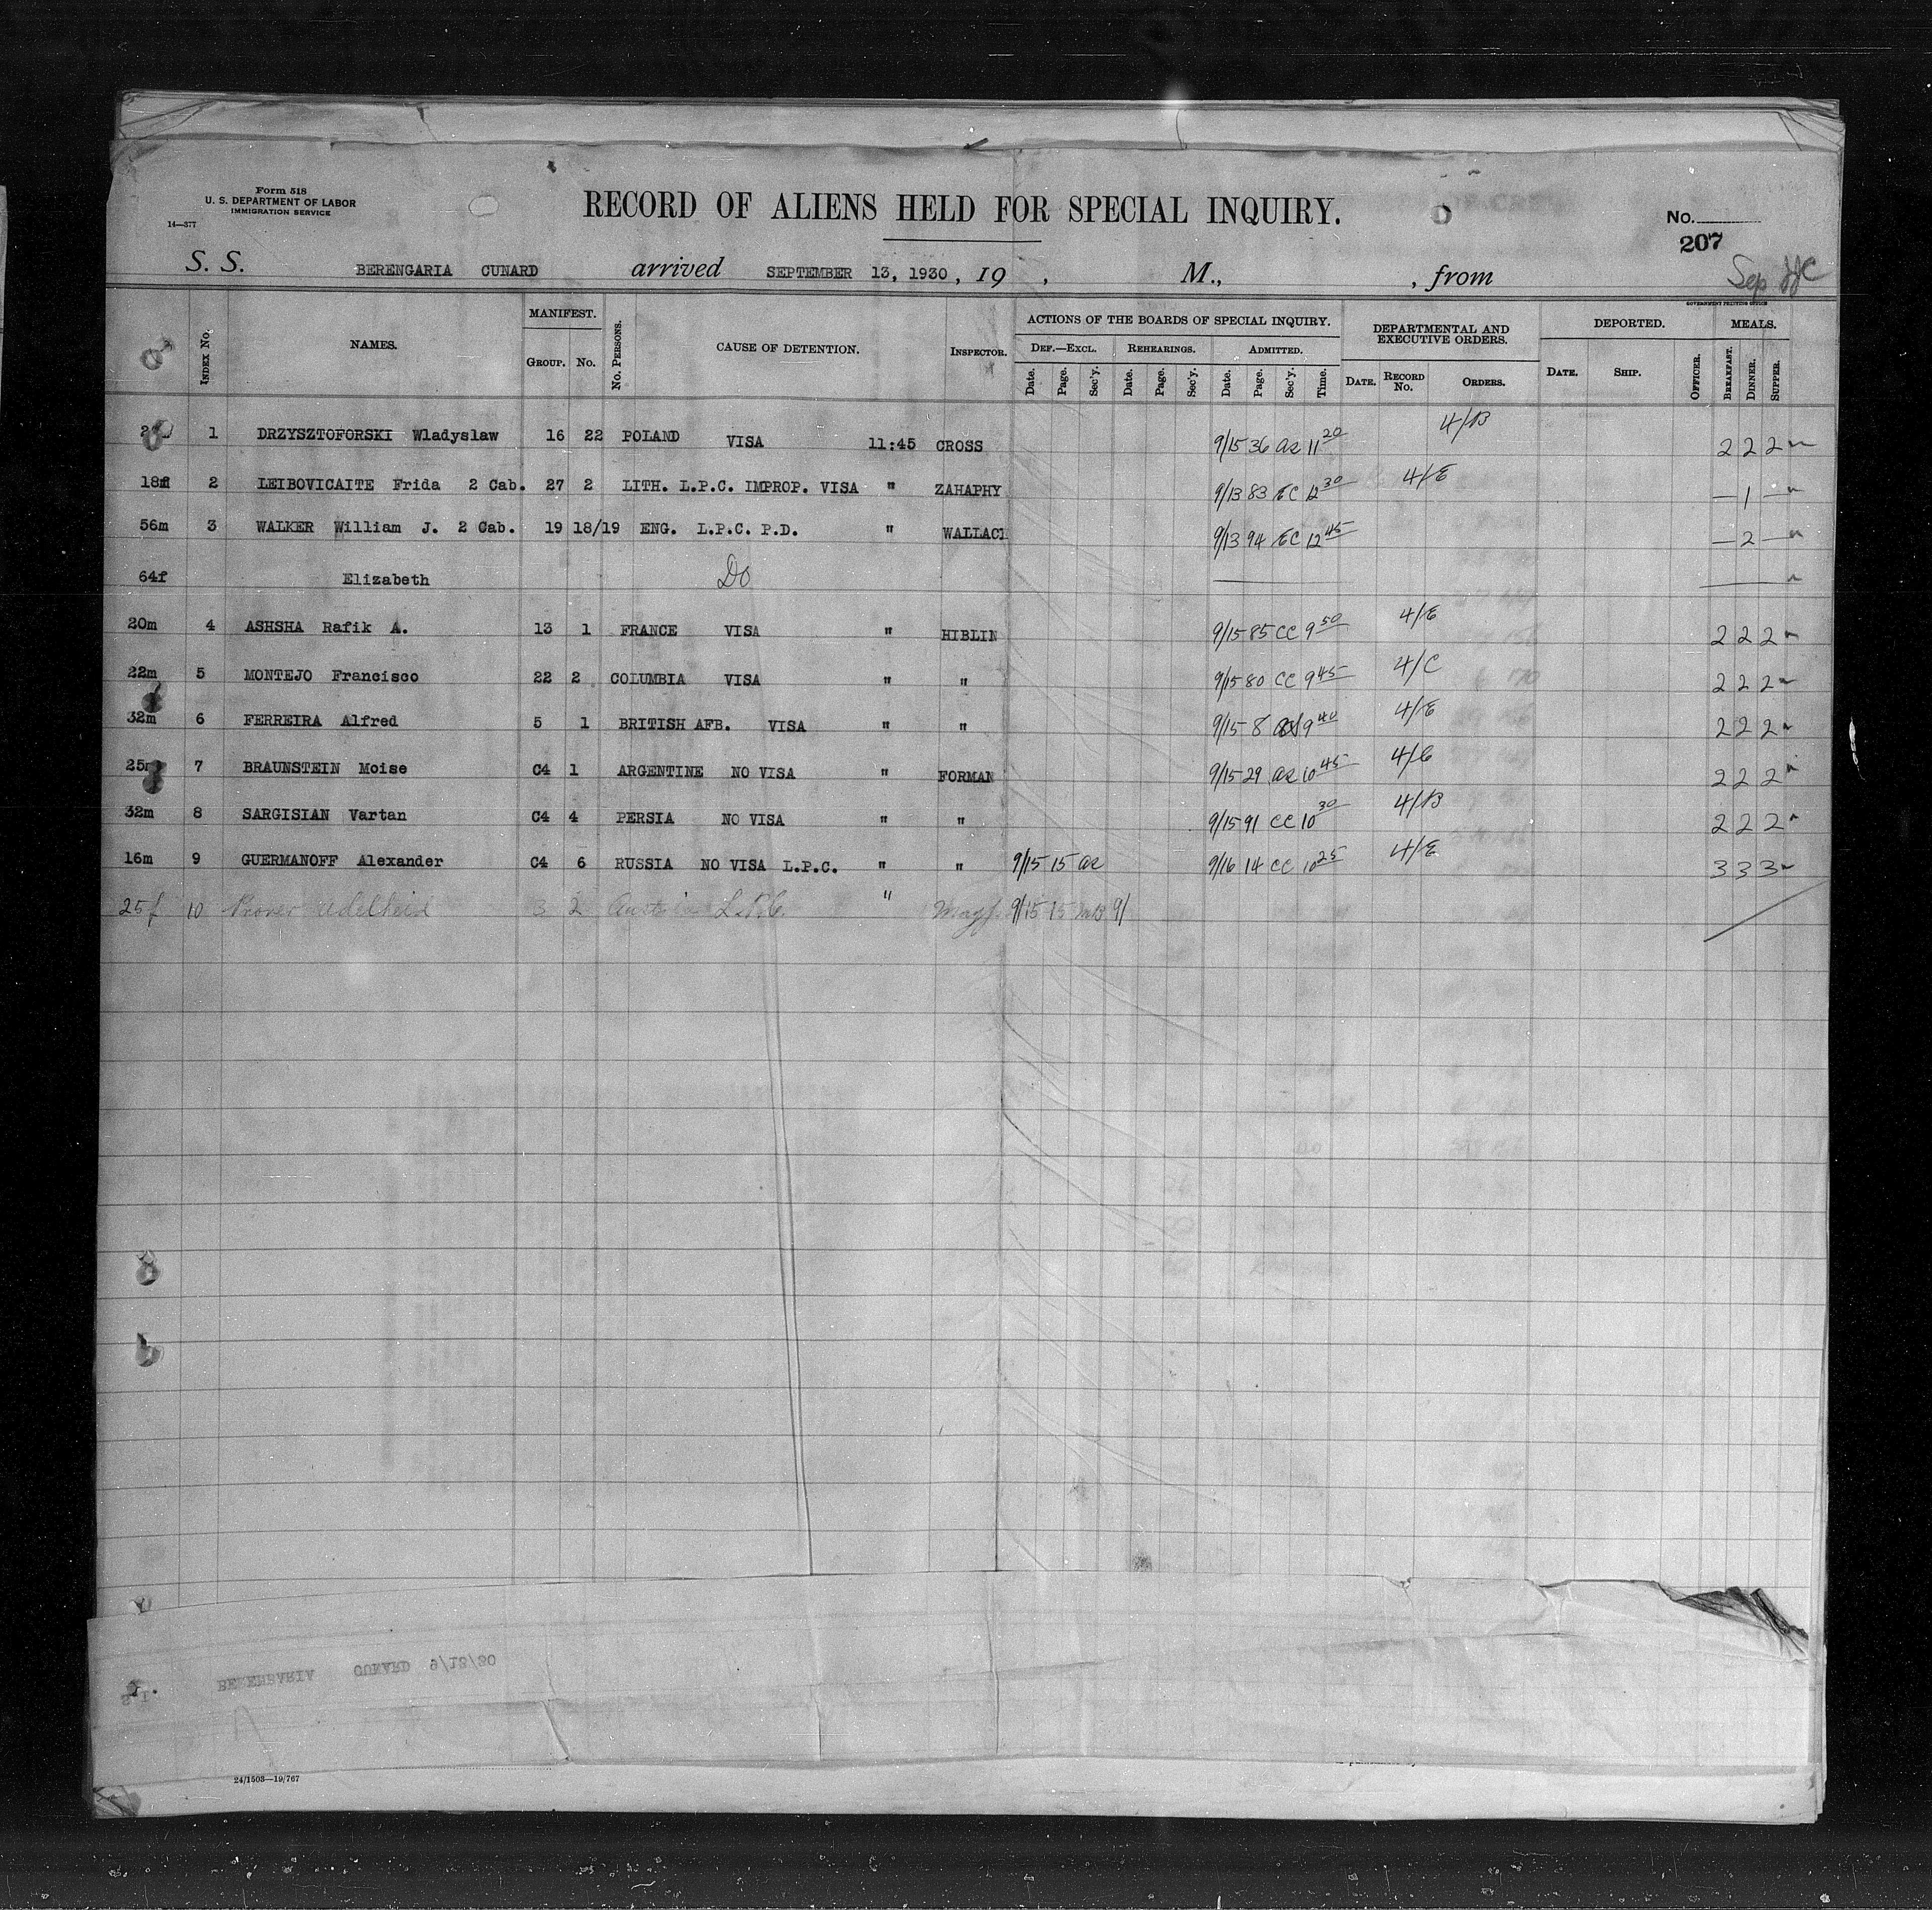 Form 518
U. S. DEPARTMENT OF LABOR
IMMIGRATION SERVICE
14—377
RECORD OF ALIENS HELD FOR SPECIAL INQUIRY.
No.
207
S. S. BERENGARIA CUNARD arrived SEPTEMBER 13, 1930, 19 , M., , from
Sep
GOVERNMENT PRINTING OFFICE
INDEX No. NAMES. MANIFEST. GROUP. No. No. PERSONS. CAUSE OF DETENTION. INSPECTOR. ACTIONS OF THE BOARDS OF SPECIAL INQUIRY. DEPARTMENTAL AND EXECUTIVE ORDERS. DEPORTED. MEALS.
DEF.—EXCL. REHEARINGS. ADMITTED.
Date. Page. Sec'y. Date. Page. Sec'y. Date. Page. Sec'y. Time. DATE. RECORD No. ORDERS. DATE. SHIP. OFFICER. BREAKFAST. DINNER. SUPPER.
1 DRZYSZTOFORSKI Wladyslaw 16 22 POLAND VISA 11:45 CROSS 9/15 36 11 20 4/B 2 2 2
18f 2 LEIBOVICAITE Frida 2 Cab. 27 2 LITH. L.P.C. IMPROP. VISA " ZAHAPHY 9/13 83 EC 12 30 4/E — 1 —
56m 3 WALKER William J. 2 Cab. 19 18/19 ENG. L.P.C. P.D. " WALLACE 9/13 94 EC 12 45 — 2 —
64f Elizabeth Do
20m 4 ASHSHA Rafik A. 13 1 FRANCE VISA " HIBLIN 9/15 85 CC 9 50 4/E 2 2 2
22m 5 MONTEJO Francisco 22 2 COLUMBIA VISA " " 9/15 80 CC 9 45 4/C 2 2 2
32m 6 FERREIRA Alfred 5 1 BRITISH AFB. VISA " " 9/15 8 9 40 4/E 2 2 2
25m 7 BRAUNSTEIN Moise C4 1 ARGENTINE NO VISA " FORMAN 9/15 29 10 45 2 2 2
32m 8 SARGISIAN Vartan C4 4 PERSIA NO VISA " " 9/15 91 CC 10 30 4/B 2 2 2
16m 9 GUERMANOFF Alexander C4 6 RUSSIA NO VISA L.P.C. " " 9/15 15 9/16 14 CC 10 25 4/E 3 3 3
25f 10 Adelheid 3 2 Austria L.P.C. " 9/15 15 9/
S.I. BERENBARIA CUNARD 9/13/30
24/1503—19/767